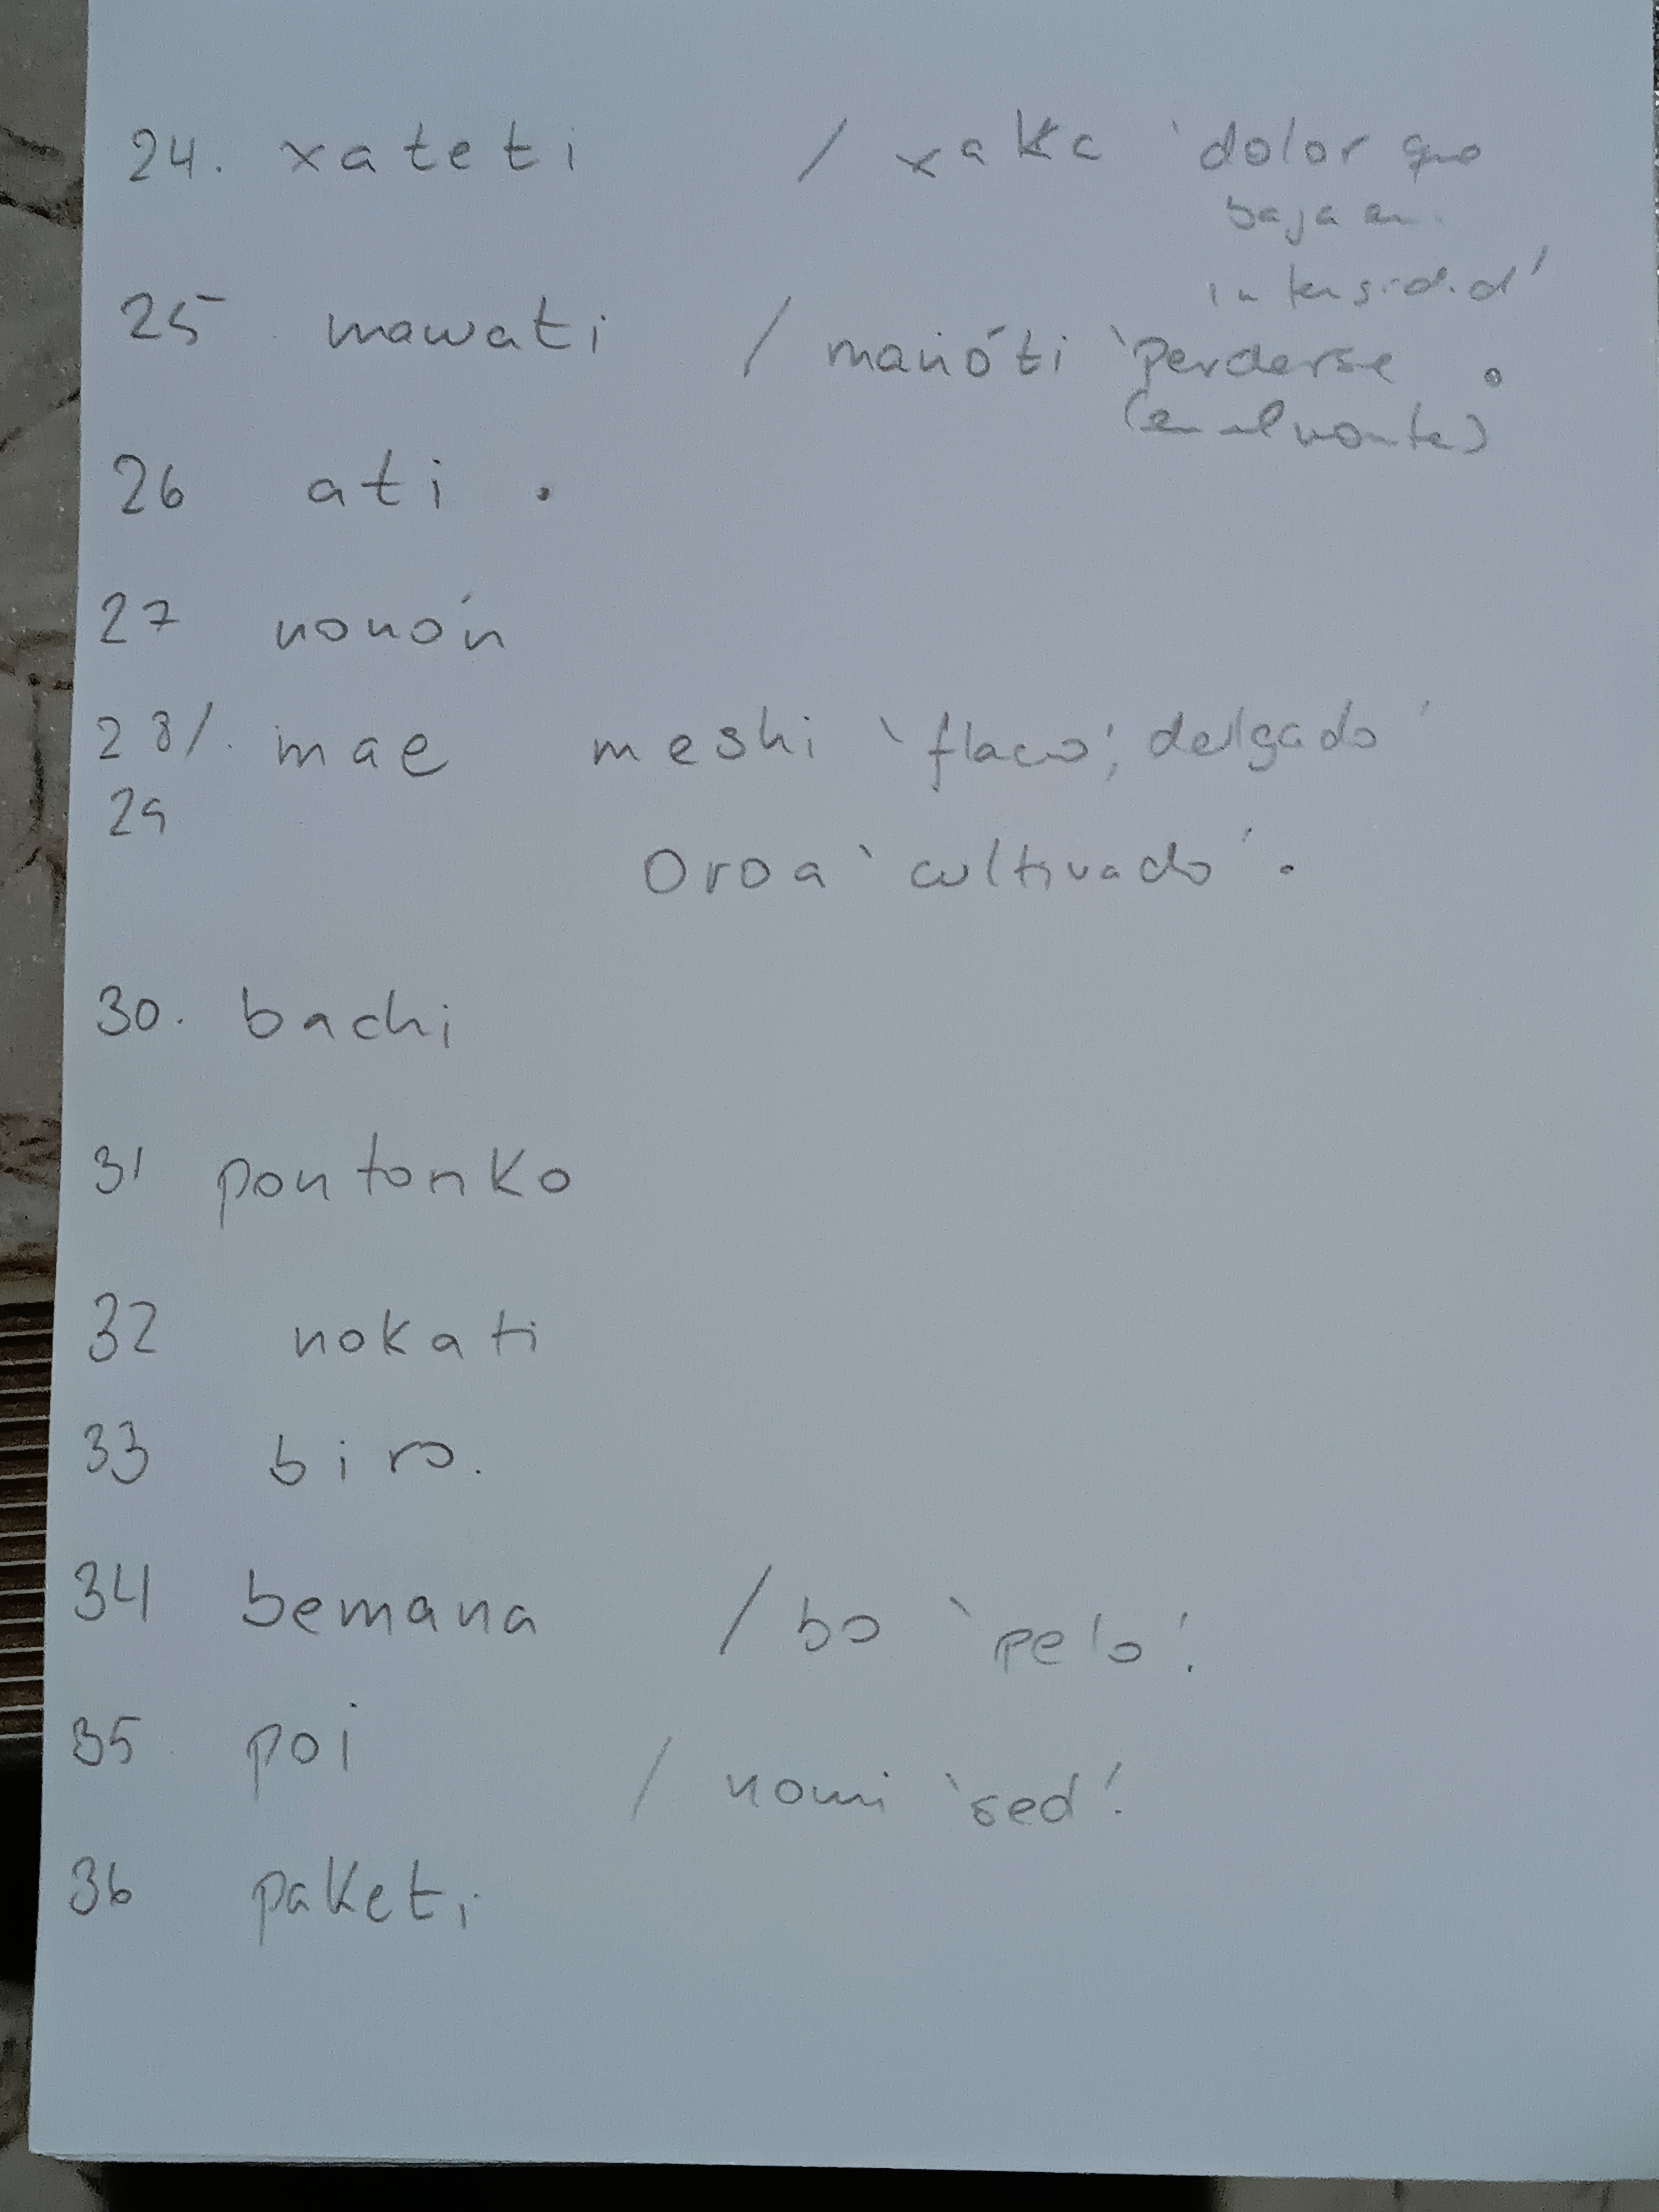 24. xateti / xaka `dolor que
baja en
intensidad'
25 mawati / manóti `perderse
(en el monte)
26 ati .
27 nonón
28/. mae meshi `flaco; delgado'
29
oroa `cultivado'.
30. bachi
31 pontonko
32 nokati
33 biro.
34 bemana / bo `pelo'.
35 poi / nomi `sed'.
36 paketi